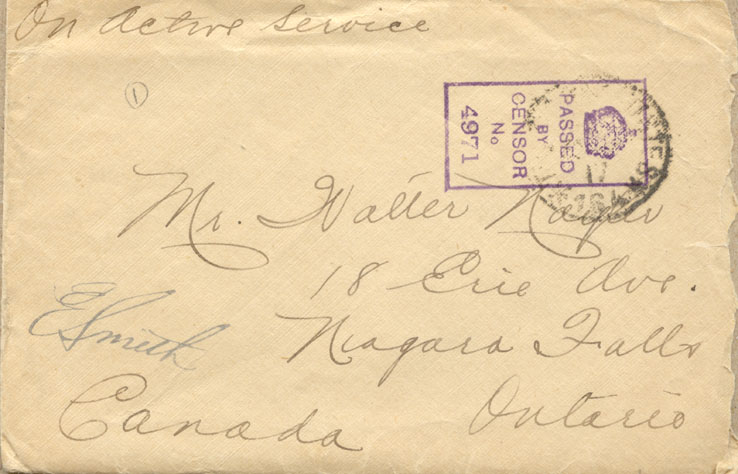 On Active Service
1
PASSED
BY
CENSOR
No
4971
17
Mr. Walter Napier
18 Erie Ave.
Niagara Falls
Ontario
Canada
E Smith